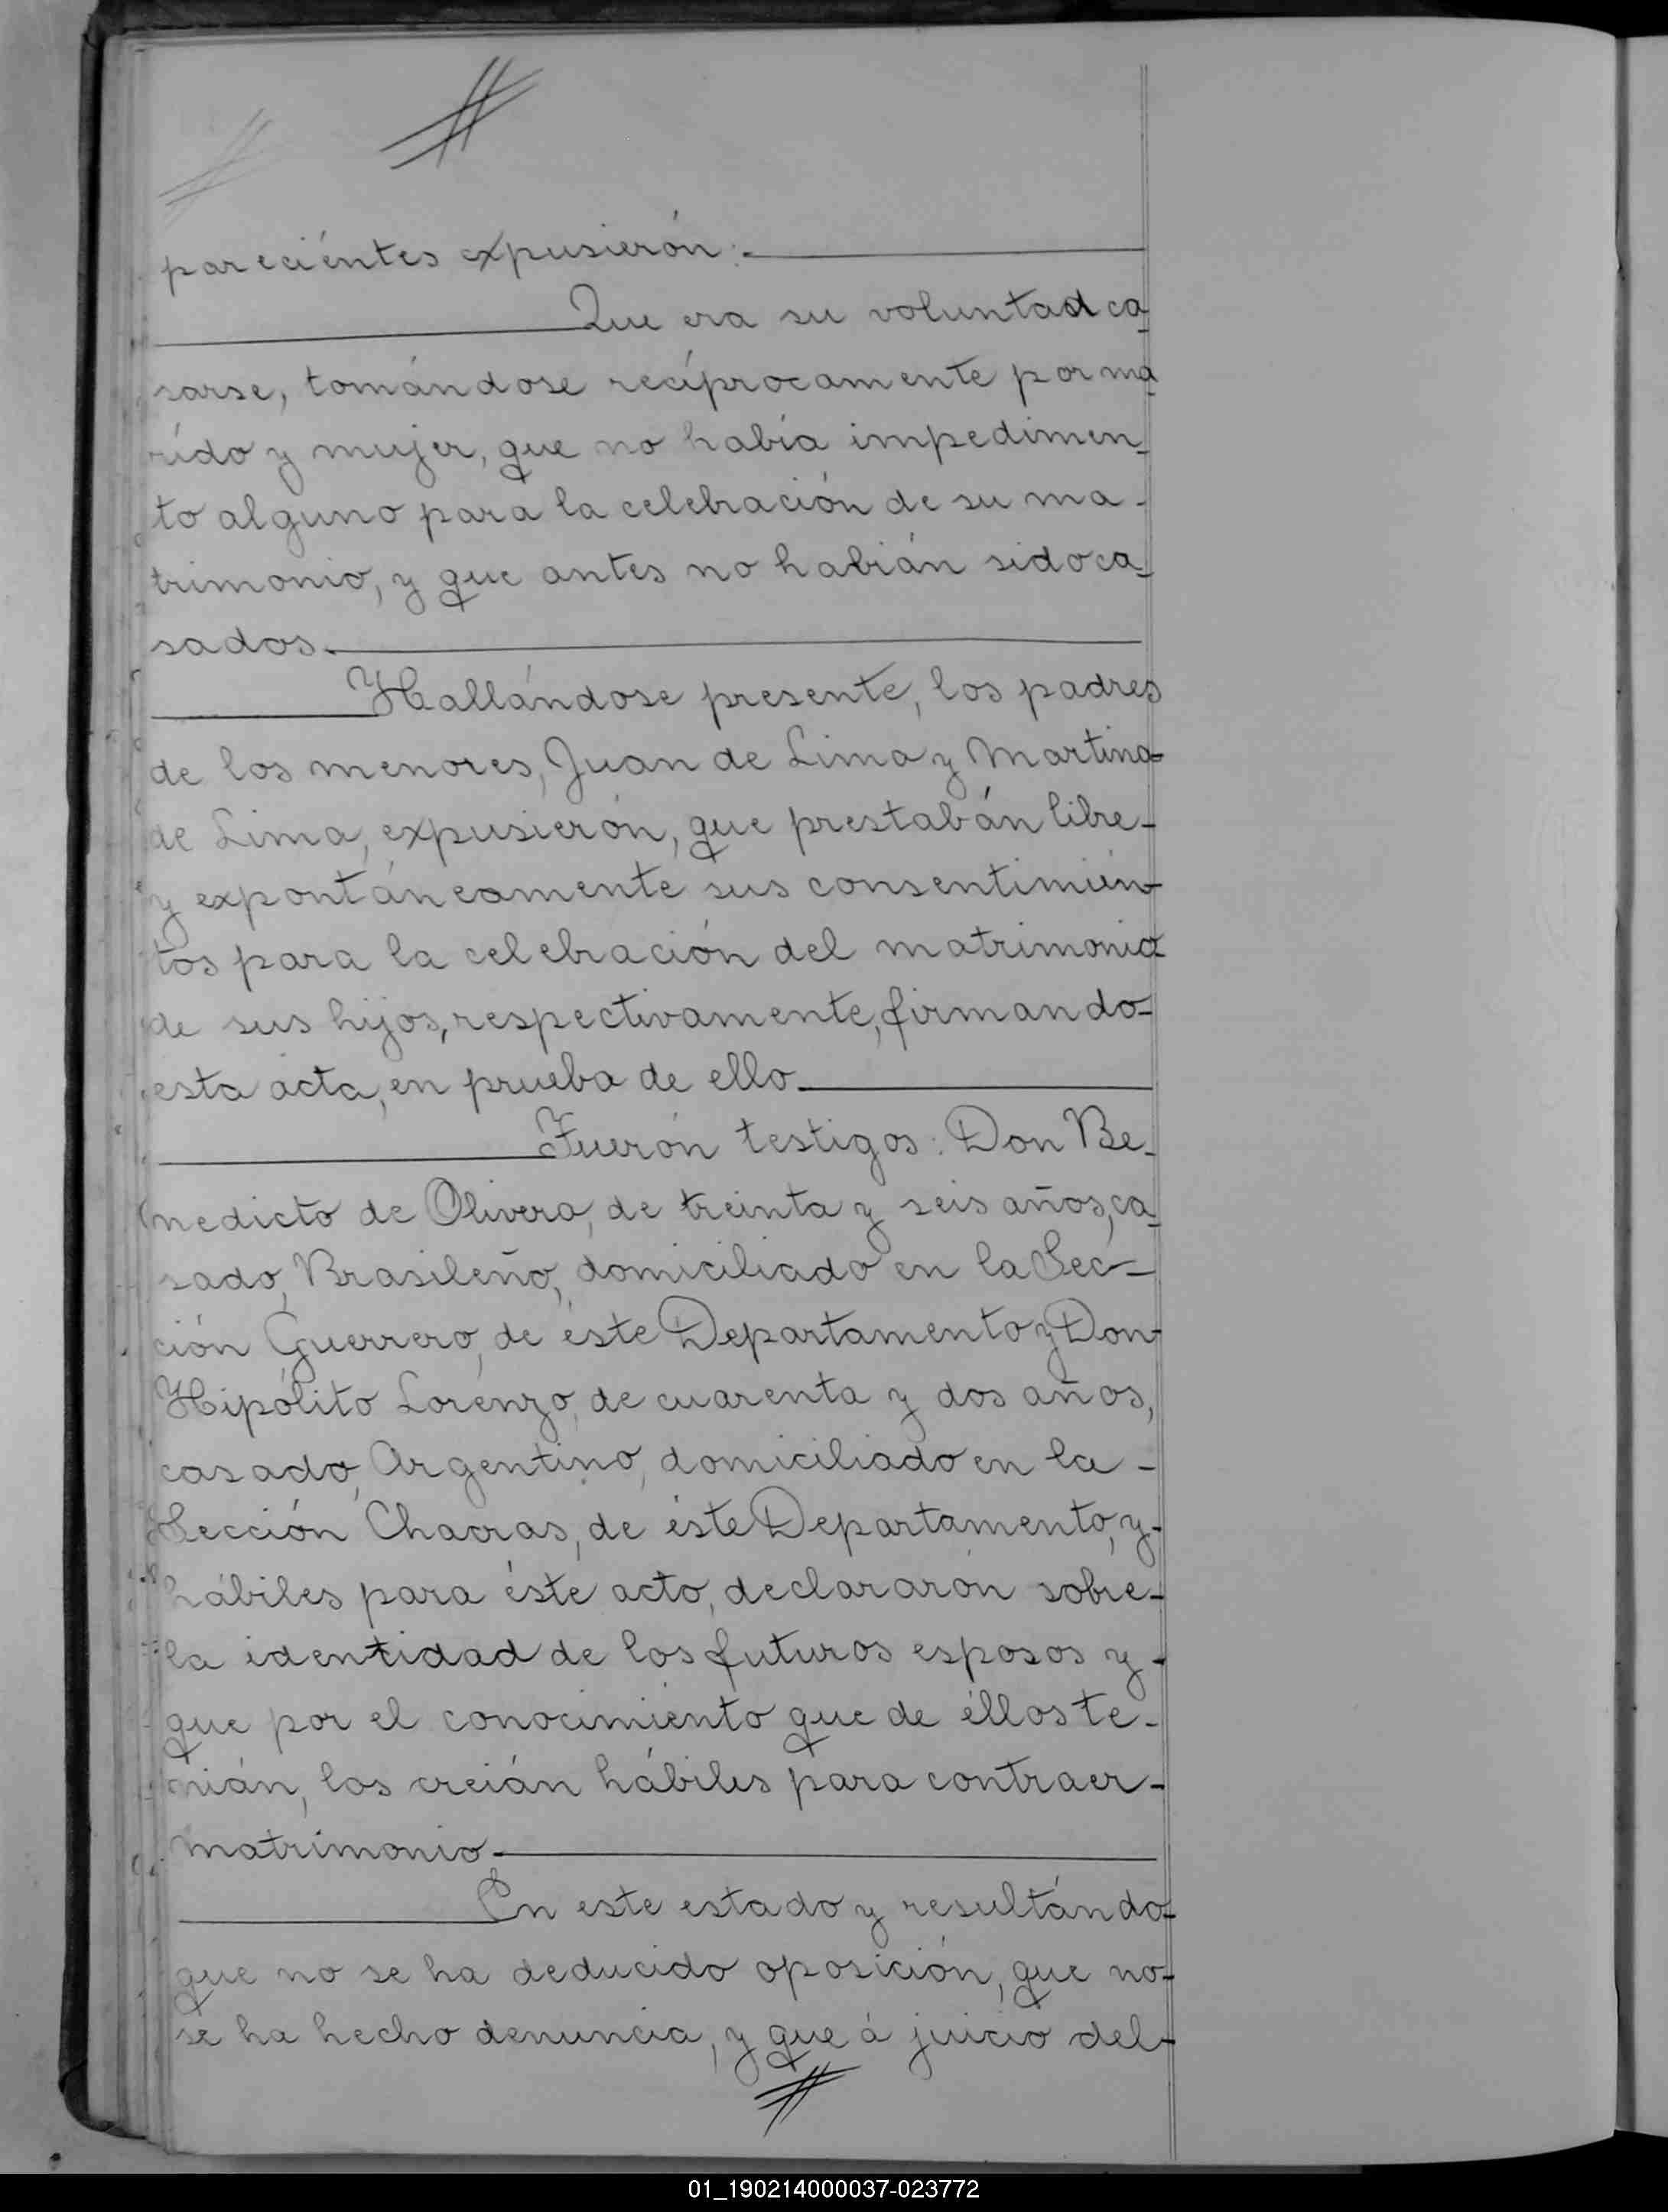 pareciéntes expusierón:-
Que era su voluntad ca-
sarse, tomándose recíprocamente por ma-
rído y mujer, que no había impedimen-
to alguno para la celebración de su ma-
trimonio, y que antes no habián sido ca-
sados.
Hallándose presente, los padres
de los menores, Juan de Lima y Martina-
de Lima, expusierón, que prestabán libre-
y expontáneamente sus consentimién-
tos para la celebración del matrimonio-
de sus hijos, respectivamente, firmando-
esta acta, en prueba de ello.
Fuerón testigos: Don Be-
nedicto de Olivera, de treinta y seis años, ca-
sado, Brasileño, domiciliado en la Sec-
ción Guerrero, de éste Departamento y Don-
Hipólito Lorénzo, de cuarenta y dos años,
casado, Argentino, domiciliado en la -
Sección Chacras, de éste Departamento, y-
hábiles para éste acto, declararón sobre-
la identidad de los futuros esposos y-
que por el conocimiénto que de éllos te-
nián, los creián hábiles para contraer-
matrimonio-
En este estado y resultándo-
que no se ha deducido oposición, que no-
se ha hecho denuncia, y que á juicio del-
01_190214000037-023772